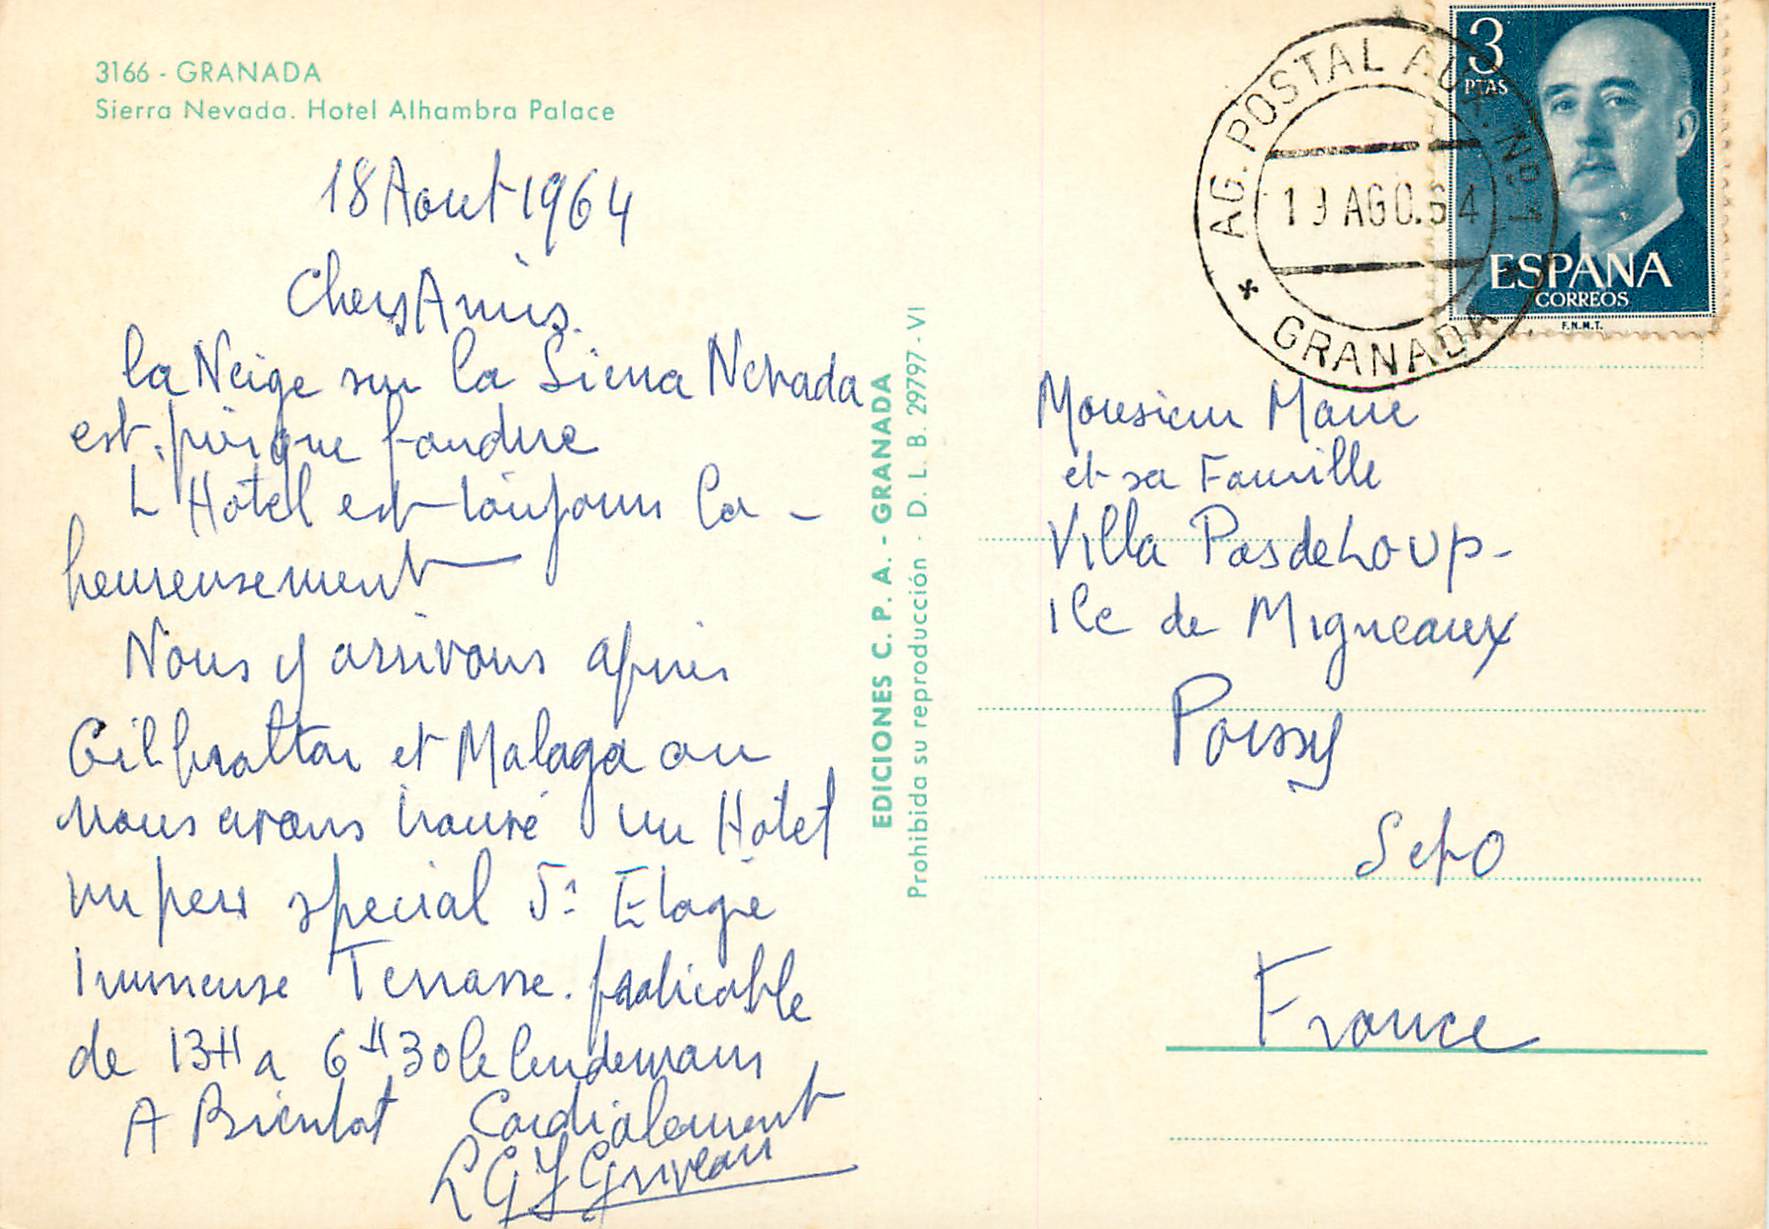 3166 - GRANADA
Sierra Nevada. Hotel Alhambra Palace
18 Aout 1964
Chers Amis.
la Neige sur la Sierra Nevada
est presque fondue
L Hotel est toujours la -
heureusement
Nous y arrivons apres
Gilbraltar et Malaga ou
nous avons trouvé un Hotel
un peu special 5e Etage
Immense Terrasse. praticable
de 13H a 6H30 le lendemain
A Bientot Cordialement
Griveau
EDICIONES C. P. A. - GRANADA
Prohibida su reproducción - D. L. B. 29797 - VI
AG. POSTAL AUX. Nº 1
19 AGO. 64
* GRANADA
3
PTAS
ESPAÑA
CORREOS
F.N.M.T.
Monsieur
et sa Famille
Villa Pas de Loup -
Ile de Migneaux
Poissy
S et O
France